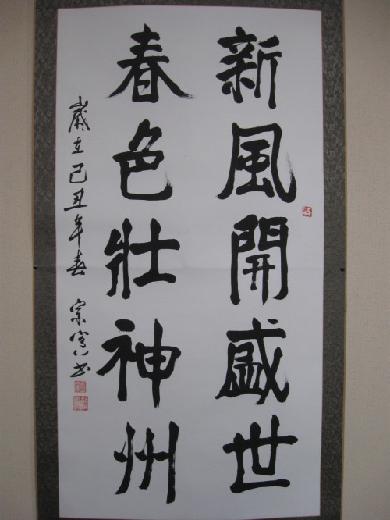 新風開盛世
春色壯神州
歲在己丑年春 宗